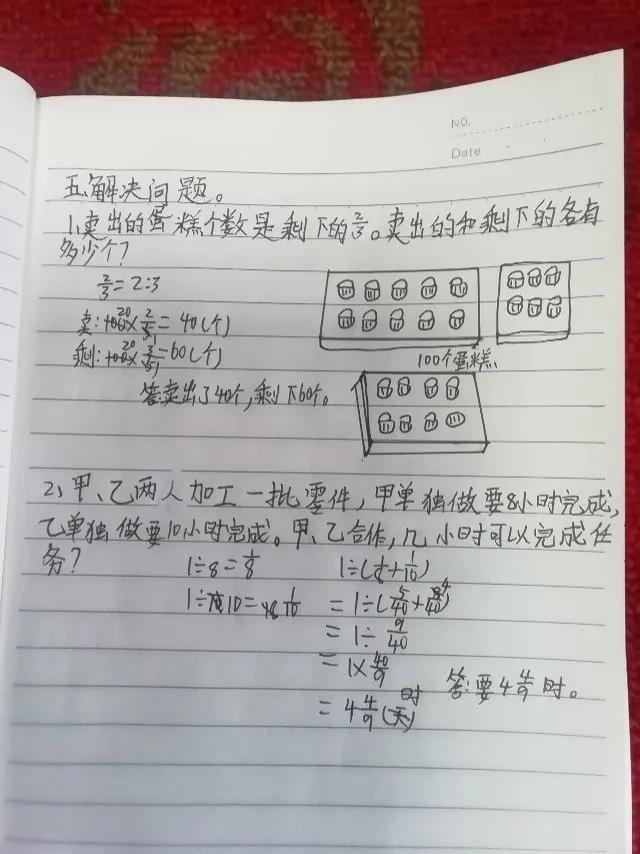 NO.
Date
五、解决问题。
1、卖出的蛋糕个数是剩下的2/3。卖出的和剩下的各有
多少个?
2/3=2:3
卖:100×2/5=40(个)
20
剩:100×3/5=60(个)
20
100个蛋糕
答:卖出了40个,剩下60个。
2、甲、乙两人加工一批零件,甲单独做要8小时完成,
乙单独做要10小时完成。甲、乙合作,几小时可以完成任
务?
1÷8=1/8
1÷10=1/10
1÷(1/8+1/10)
=1÷(5/40+4/40)
=1÷9/40
=1×40/9
=4 4/9(时)
答:要4 4/9时。